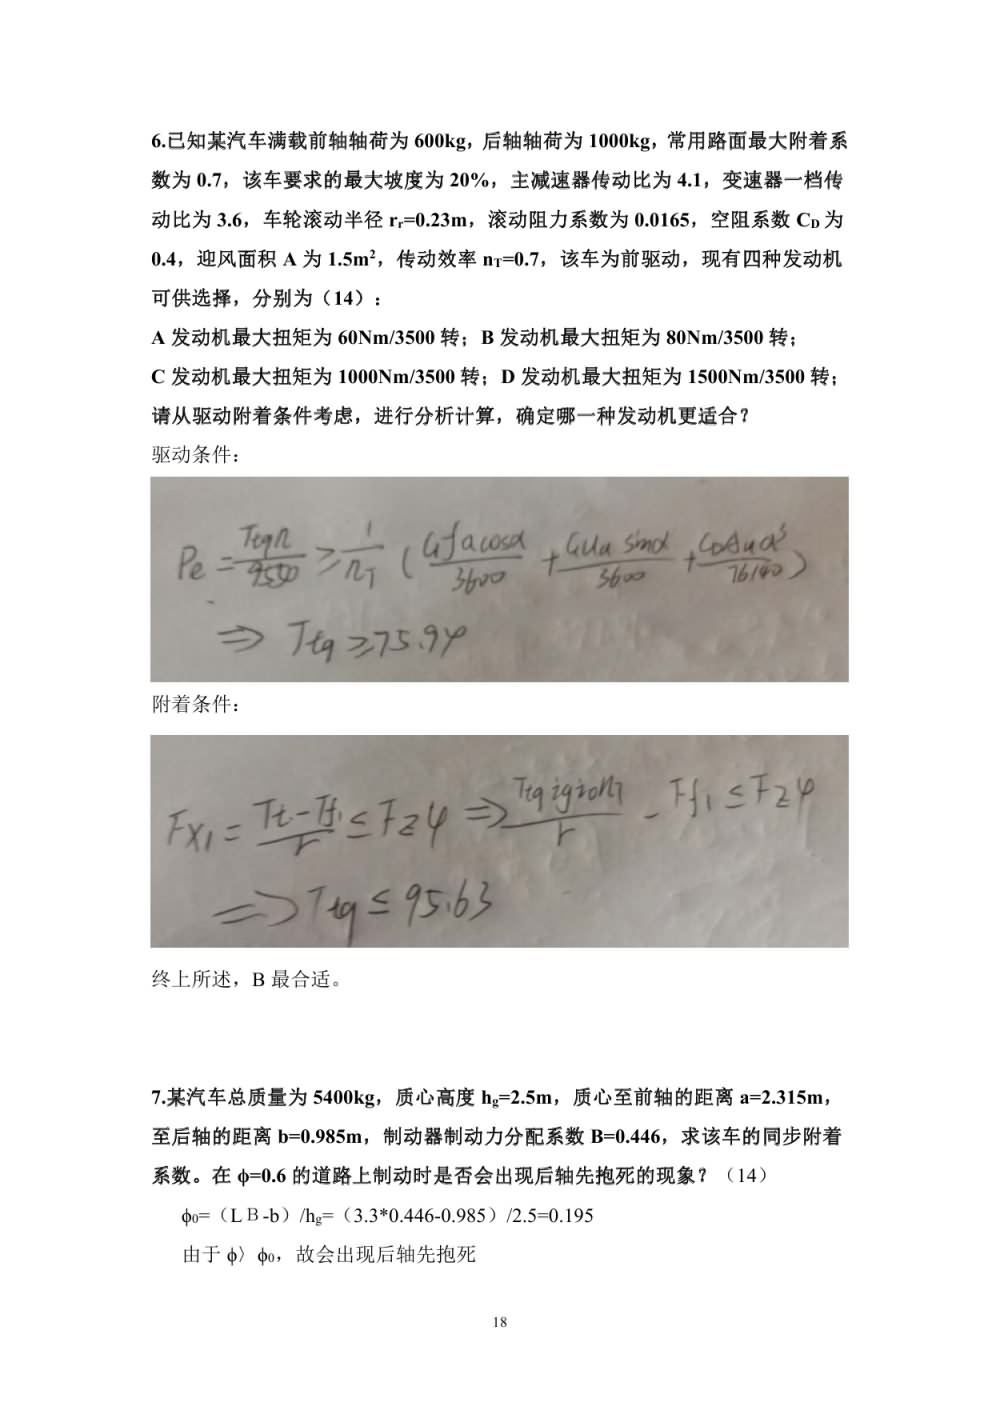 6.已知某汽车满载前轴轴荷为 600kg，后轴轴荷为 1000kg，常用路面最大附着系
数为 0.7，该车要求的最大坡度为 20%，主减速器传动比为 4.1，变速器一档传
动比为 3.6，车轮滚动半径 rᵣ=0.23m，滚动阻力系数为 0.0165，空阻系数 C_D 为
0.4，迎风面积 A 为 1.5m²，传动效率 n_T=0.7，该车为前驱动，现有四种发动机
可供选择，分别为（14）:
A 发动机最大扭矩为 60Nm/3500 转；B 发动机最大扭矩为 80Nm/3500 转；
C 发动机最大扭矩为 1000Nm/3500 转；D 发动机最大扭矩为 1500Nm/3500 转；
请从驱动附着条件考虑，进行分析计算，确定哪一种发动机更适合？
驱动条件：
Pe = Ttqn/9550 ≥ 1/n_T (Gfacosα/3600 + GUa sinα/3600 + C_DAua³/76140)
⇒ Ttq ≥ 75.94
附着条件：
Fx₁ = Tt-Tf₁/r ≤ Fzφ ⇒ Ttq ig i₀ n_T/r - Ff₁ ≤ Fzφ
⇒ Ttq ≤ 95.63
终上所述，B 最合适。
7.某汽车总质量为 5400kg，质心高度 h_g=2.5m，质心至前轴的距离 a=2.315m，
至后轴的距离 b=0.985m，制动器制动力分配系数 B=0.446，求该车的同步附着
系数。在 ϕ=0.6 的道路上制动时是否会出现后轴先抱死的现象？（14）
ϕ₀=（LＢ-b）/h_g=（3.3*0.446-0.985）/2.5=0.195
由于 ϕ〉ϕ₀，故会出现后轴先抱死
18